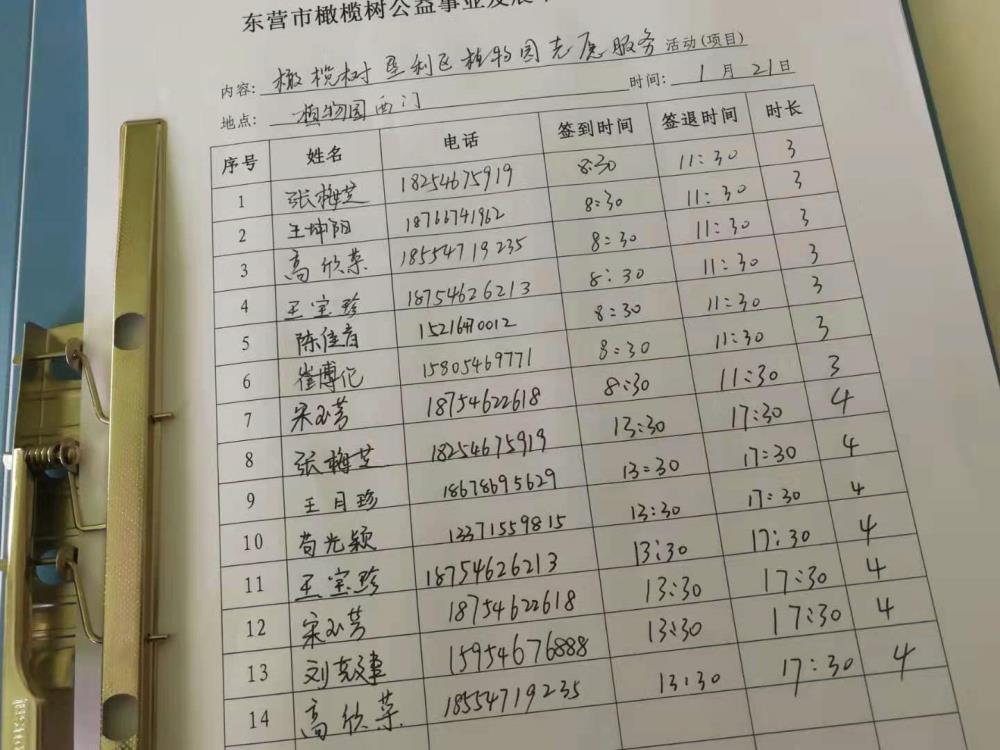 东营市橄榄树公益事业发展
内容: 橄榄树垦利区植物园志愿服务 活动(项目)
地点: 植物园西门 时间: 1月21日
序号 姓名 电话 签到时间 签退时间 时长
1 张梅芝 18254675919 8:30 11:30 3
2 王坤阳 18766741962 8:30 11:30 3
3 高欣荣 18554719235 8:30 11:30 3
4 王宝珍 18754626213 8:30 11:30 3
5 陈佳音 8:30 11:30 3
6 崔博伦 15805469771 8:30 11:30 3
7 宋玉芳 18754622618 8:30 11:30 3
8 张梅芝 18254675919 13:30 17:30 4
9 王月珍 18678695629 13:30 17:30 4
10 苟光颖 13371559815 13:30 17:30 4
11 王宝珍 18754626213 13:30 17:30 4
12 宋玉芳 18754622618 13:30 17:30 4
13 15954676888 13:30 17:30 4
14 高欣荣 18554719235 13:30 17:30 4